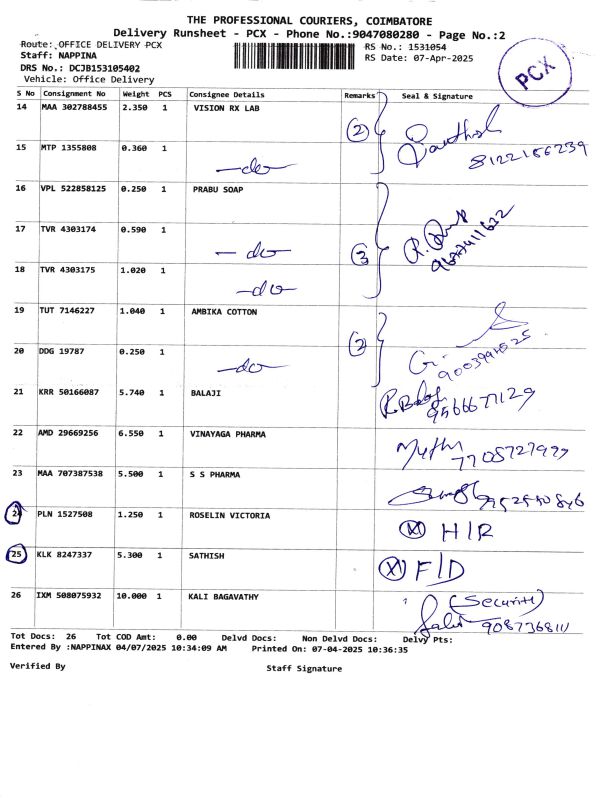 THE PROFESSIONAL COURIERS, COIMBATORE
Delivery Runsheet - PCX - Phone No.:9047080280 - Page No.:2
Route: OFFICE DELIVERY PCX RS No.: 1531054
Staff: NAPPINA RS Date: 07-Apr-2025
DRS No.: DCJB153105402
Vehicle: Office Delivery
PCX
S No Consignment No Weight PCS Consignee Details Remarks Seal & Signature
14 MAA 302788455 2.350 1 VISION RX LAB (2)
15 MTP 1355808 0.360 1 -do- 8122186239
16 VPL 522858125 0.250 1 PRABU SOAP
17 TVR 4303174 0.590 1 -do- (3)
18 TVR 4303175 1.020 1 -do-
19 TUT 7146227 1.040 1 AMBIKA COTTON (2)
20 DDG 19787 0.250 1 -do-
21 KRR 50166087 5.740 1 BALAJI 9566677129
22 AMD 29669256 6.550 1 VINAYAGA PHARMA 7705727977
23 MAA 707387538 5.500 1 S S PHARMA
24 PLN 1527508 1.250 1 ROSELIN VICTORIA (X) H/R
25 KLK 8247337 5.300 1 SATHISH (X) F/D
26 IXM 508075932 10.000 1 KALI BAGAVATHY (Security)
9087368111
Tot Docs: 26 Tot COD Amt: 0.00 Delvd Docs: Non Delvd Docs: Delvy Pts:
Entered By :NAPPINAX 04/07/2025 10:34:09 AM Printed On: 07-04-2025 10:36:35
Verified By Staff Signature